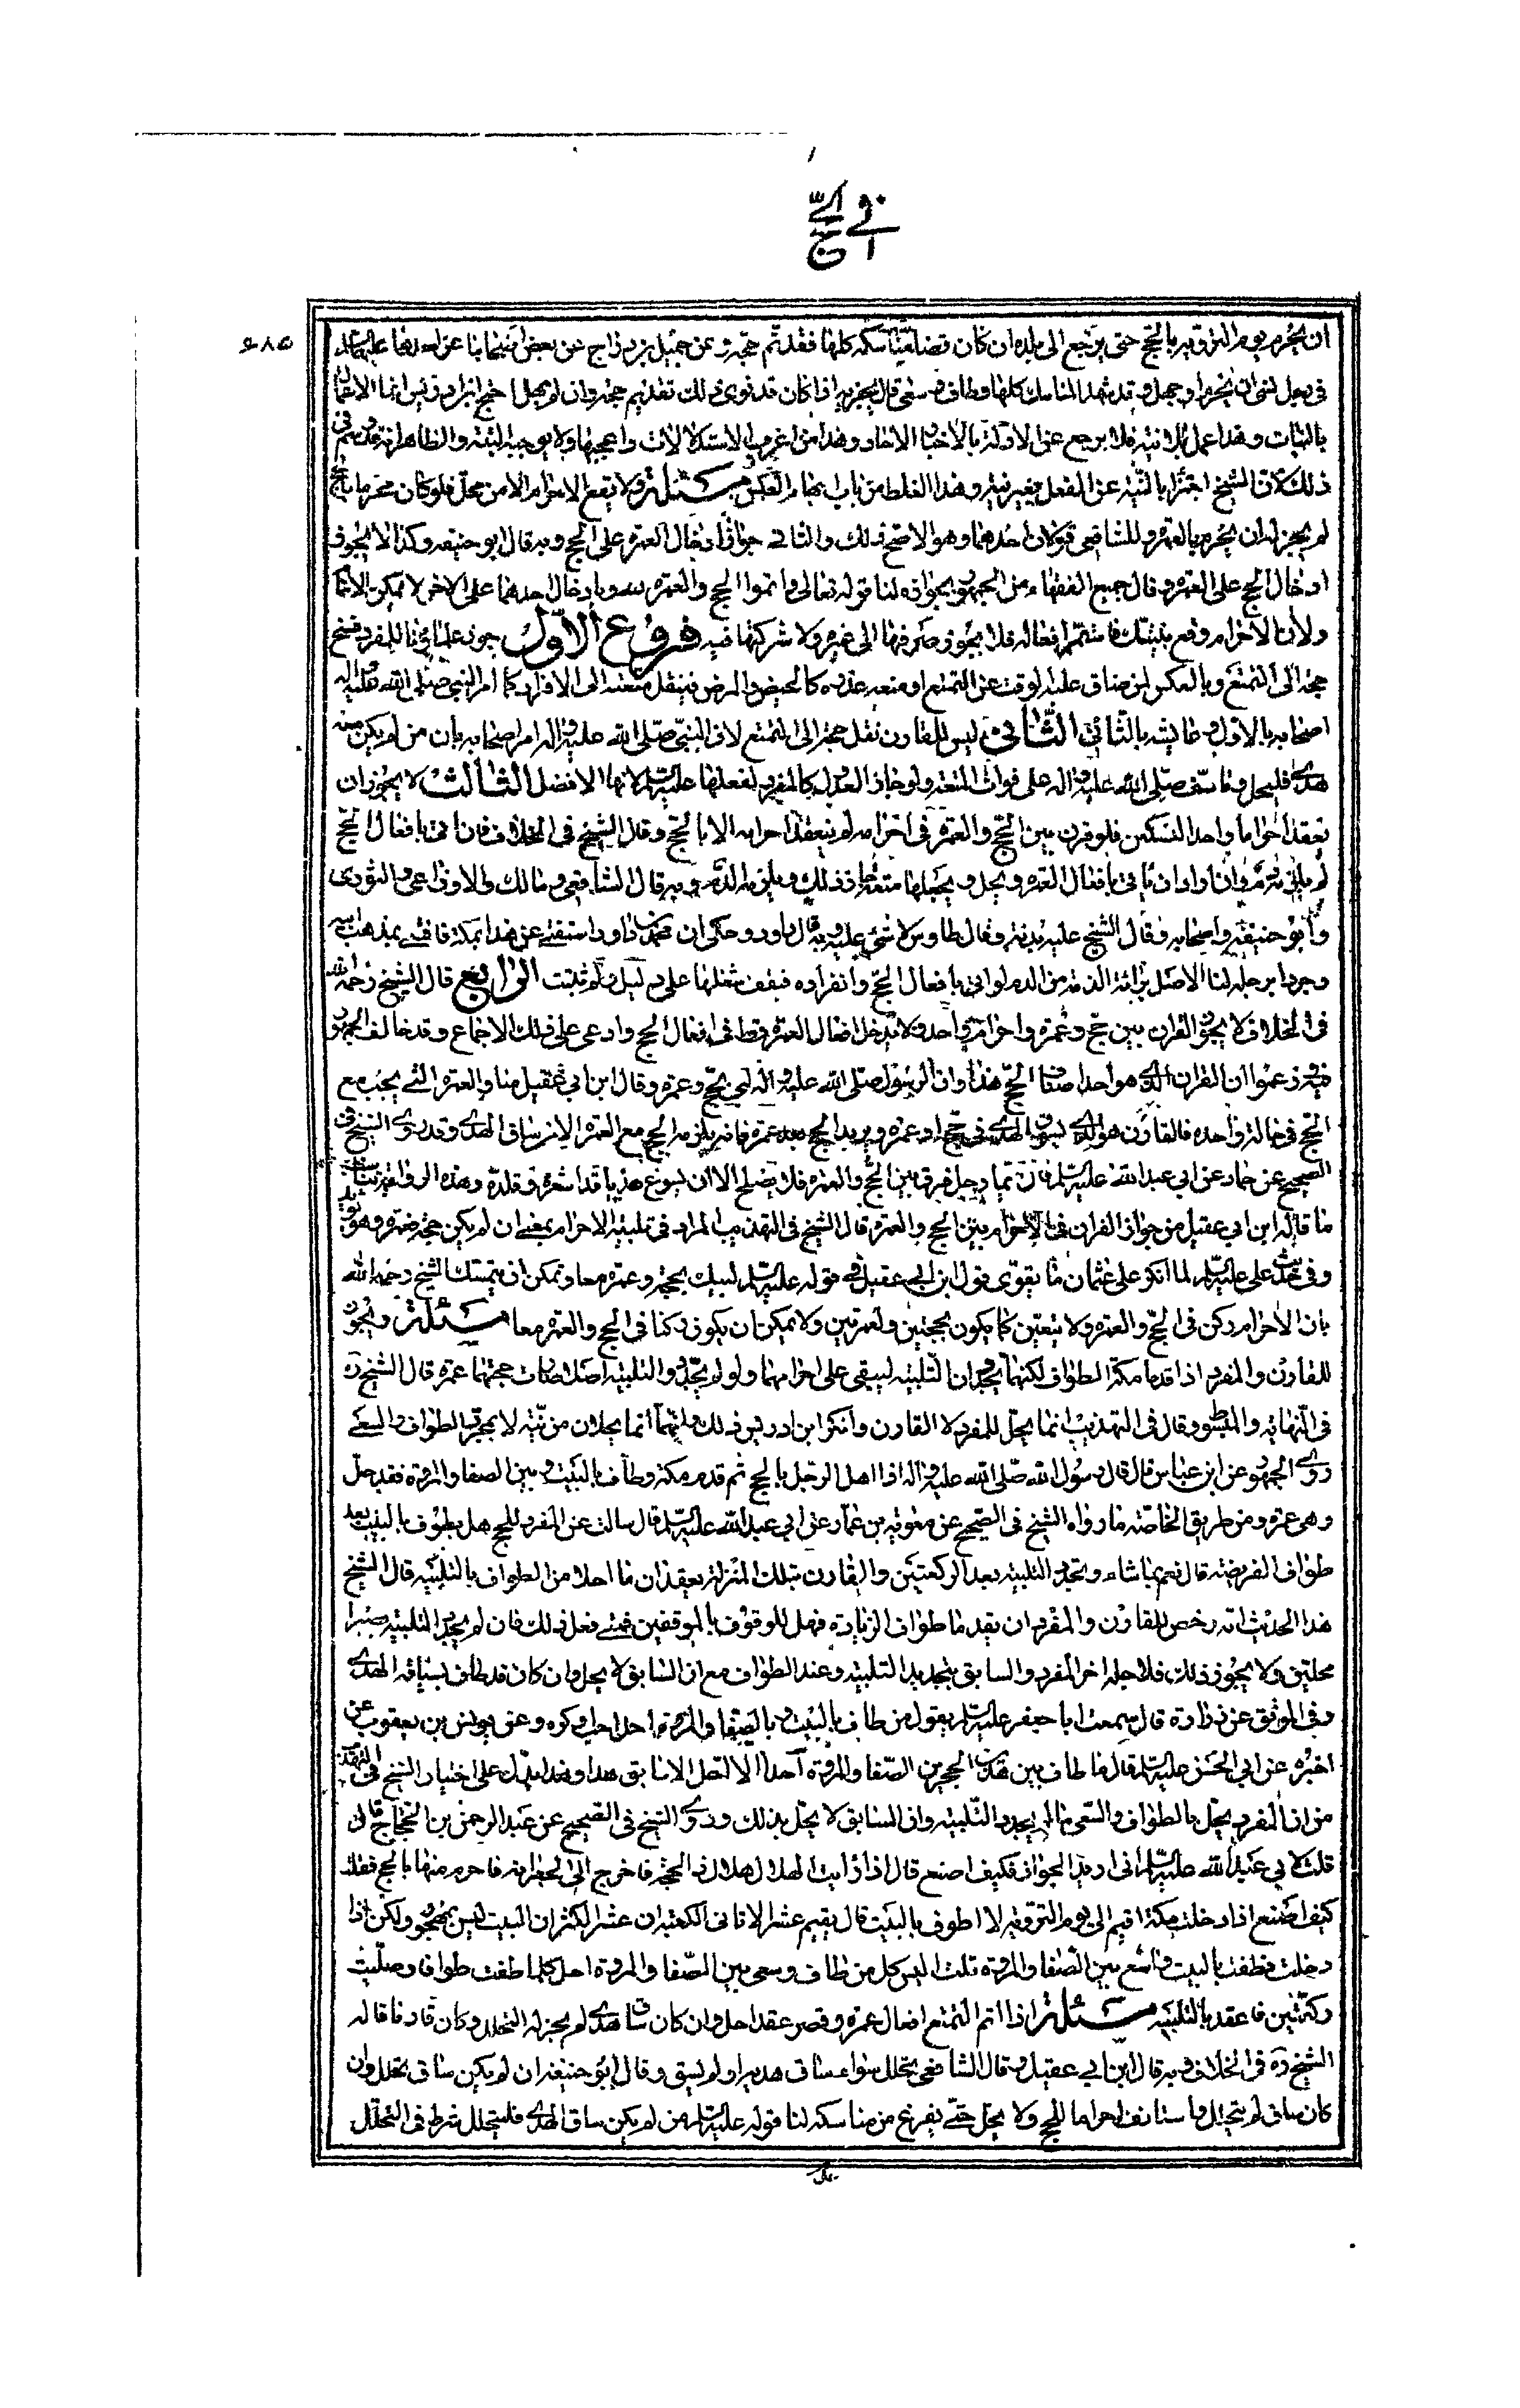 في الحج
٦٨٥
ان يحرم يوم التروية بالحج حتى يرجع الى بلده ان كان قضى مناسكه كلها فقد تم حجه وعن جميل بن دراج عن بعض اصحابنا عن احدهما عليهما السلام
في رجل نسى ان يحرم او جهل وقد شهد المناسك كلها وطاف وسعى قال يجزيه اذا كان قد نوى ذلك فقد تم حجه وان لم يهل احتج ابن ادريس انما الاعمال
بالنيات وهذا عمل بلا نية فلا يرجع عن الادلة بالاخبار الاحاد وهذا من اغرب الاستدلالات واعجبها ولا يوجبه البتة والظاهر انه قد وهم في
ذلك لان الشيخ اجتزأ بالنية عن الفعل بغير نية وهذا الغلط من باب ايهام العكس مسئلة ولا يقع الاحرام الا من محل فلو كان محرما بالحج
لم يجز له ان يحرم بالعمرة وللشافعي قولان احدهما وهو الاصح ذلك والثاني جواز ادخال العمرة على الحج وبه قال ابو حنيفة وكذا لا يجوز
ادخال الحج على العمرة وقال جميع الفقهاء من الجمهور بجوازه لنا قوله تعالى واتموا الحج والعمرة لله وبادخال احدهما على الاخر لا يمكن الاتمام
ولان الاحرام وقع بنسك فاستتم افعاله فلا يجوز صرفها الى غيره ولا شركتها فيه فروع الاول جوز علمائنا للمفرد فسخ
حجه الى التمتع وبالعكس لمن ضاق عليه الوقت عن التمتع او منعه عذره كالحيض والمرض فينقل متعته الى الافراد كما امر النبي صلى الله عليه واله
اصحابه بالاول وعائشه بالثاني الثاني ليس للقارن نقل حجه الى التمتع لان النبي صلى الله عليه واله امر اصحابه بان من لم يكن معه
هدى فليحل وتاسف صلى الله عليه واله على فوات المتعه ولو جاز العدول كالمفرد لفعلها عليه السلام لانها الافضل الثالث لا يجوز ان
تعقد احراما واحد النسكين فلو قرن بين الحج والعمرة في احرامه لم ينعقد احرامه الا بالحج وقال الشيخ في الخلاف فان اتى بافعال الحج
لم يلزمه دم وان اراد ان ياتي بافعال العمرة ويحل ويجعلها متعة جاز ذلك ويلزمه الدم وبه قال الشافعي ومالك والاوزاعي والثوري
وابو حنيفة واصحابه وقال الشعبي عليه بدنة وقال طاوس لا شئ عليه وبه قال داود وحكى ان محمد بن داود استفتى عن هذا بمكة فافتى بمذهب ابيه
وجروا برجله لنا الاصل برائة الذمة من الدم لو اتى بافعال الحج وانفراده فيقف شغلها على دليل ولم تثبت الرابع قال الشيخ رحمه الله
في الخلاف لا يجوز القران بين حج وعمرة واحرام واحد ولا تدخل افعال العمرة قط في افعال الحج وادعى على ذلك الاجماع وقد خالف الجمهور
فيه وزعموا ان القران الذي هو احد اصناف الحج هذا وان الرسول صلى الله عليه واله لبى بحج وعمرة وقال ابن ابي عقيل منا والعمرة التي يجب مع
الحج في حالة واحدة فالقارن هو الذي يسوق الهدى في حج او عمرة ويريد الحج بعد عمرة فانه يلزمه الحج مع العمرة الا من ساق الهدى وقد روى الشيخ في
الصحيح عن حماد عن ابي عبد الله عليه السلام قال ايما رجل قرن بين الحج والعمرة فلا يصلح الا ان يسوق هديا قد اشعره وقلده وهذه الرواية
ما قاله ابن ابي عقيل من جواز القران في الاحرام بين الحج والعمرة قال الشيخ في التهذيب المراد في تلبية الاحرام بمعنى ان لم يكن حجة فعمرة وهو
وفي حديث على عليه السلام لما انكر على عثمان ما يقوى قول ابن ابي عقيل في قوله عليه السلام لبيك بحجة وعمرة معا ويمكن ان يتمسك الشيخ رحمه الله
بان الاحرام ركن في الحج والعمرة ولا يتعين كما يكون بحجتين ولعمرتين ولا يمكن ان يكون ركنا في الحج والعمرة معا مسئلة ويجوز
للقارن والمفرد اذا قدما مكة الطواف لكنهما يجددان التلبيه ليبقى على احرامهما ولو لم يجددوا التلبيه اصلا صارت حجتهما عمرة قال الشيخ ره
في النهاية والمبسوط وقال في التهذيب انما يحل للمفرد لا القارن وانكر ابن ادريس ذلك وانهما انما يحلان من نية لا بمجرد الطواف والسعى
روى الجمهور عن ابن عباس قال قال رسول الله صلى الله عليه واله اذا اهل الرجل بالحج ثم قدم مكة وطاف بالبيت وبين الصفا والمروة فقد حل
وهي عمرة ومن طريق الخاصة ما رواه الشيخ في الصحيح عن معوية بن عمار عن ابي عبد الله عليه السلام قال سالت عن المفرد للحج هل يطوف بالبيت بعد
طواف الفريضة قال نعم ما شاء ويجدد التلبية بعد الركعتين والقارن بتلك المنزلة يعقدان ما احلا من الطواف بالتلبية قال الشيخ
هذا الحديث انه رخص للقارن والمفرد ان يقدما طواف الزيارة قبل الوقوف بالموقفين فمتى فعل ذلك فان لم يجدد التلبية يصيرا
محلين ولا يجوز ذلك فلاجله امر المفرد والسايق بتجديد التلبية وعند الطواف مع ان السابق لا يحل وان كان قد طاف بسياقه الهدى
وفي الموثق عن زرارة قال سمعت ابا جعفر عليه السلام يقول من طاف بالبيت وبالصفا والمروة احل احب او كره وعن يونس بن يعقوب عن
اخبره عن ابي الحسن عليه السلام قال ما طاف بين هذين الحجرين الصفا والمروة احد الا احل الا سائق هدا وهذا يدل على اختيار الشيخ في التهذيب
من ان المفرد يحل بالطواف والسعى ما لم يجدد التلبيه وان السايق لا يحل بذلك وروى الشيخ في الصحيح عن عبد الرحمن بن الحجاج قال
قلت لابي عبد الله عليه السلام اني اريد الجوار فكيف اصنع قال اذا رايت الهلال هلال ذي الحجة فاخرج الى الجعرانه فاحرم منها بالحج فقلت
كيف اصنع اذا دخلت مكة اقيم الى يوم التروية لا اطوف بالبيت قال يقيم عشرا لا تاتي الكعبة ان عشرا لكثير ان البيت ليس بمهجور ولكن اذا
دخلت فطف بالبيت واسع بين الصفا والمروة قلت اليس كل من طاف وسعى بين الصفا والمروة احل كلما طفت طوافا وصليت
ركعتين فاعقد بالتلبيه مسئلة اذا اتم التمتع افعال عمرة وقصر عقد احل وان كان ساق هدى لم يجز له التحلل وكان قارنا قاله
الشيخ ره في الخلاف وبه قال ابن ابي عقيل وقال الشافعي يتحلل سواء ساق هديا او لم يسق وقال ابو حنيفة ان لم يكن ساق تحلل وان
كان ساق لم يتحلل واستانف احراما للحج ولا يحل حتى يفرغ من مناسكه لنا قوله عليه السلام من لم يكن ساق الهدى فليتحلل شرط في التحلل